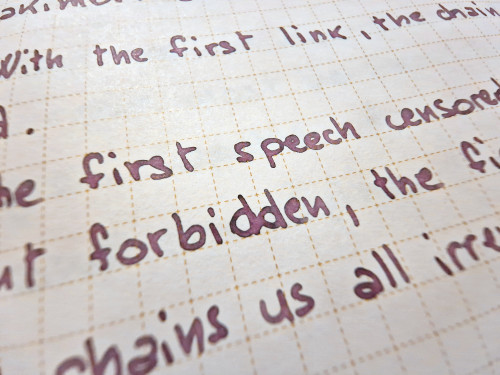 With the first link, the chain
.
he first speech censored
forbidden, the
chains us all